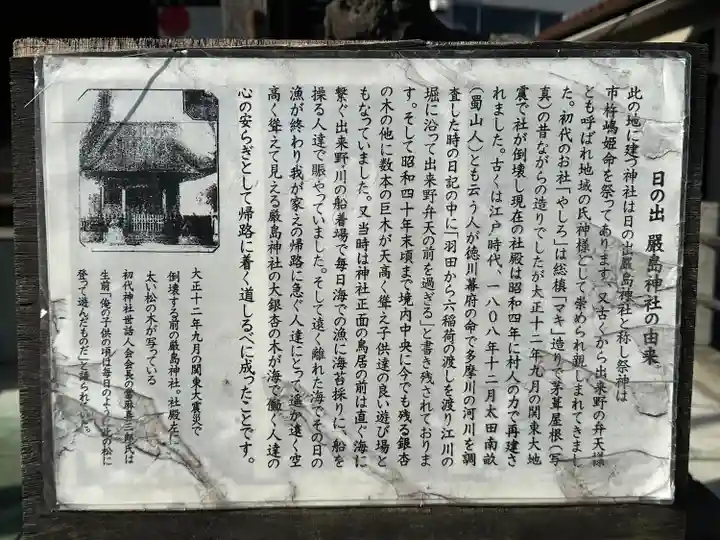 日の出 嚴島神社の由来
此の地に建つ神社は日の出嚴島神社と称し祭神は
市杵嶋姫命を祭ってあります、又古くから出来野の弁天様
とも呼ばれ地域の氏神様として崇められ親しまれてきまし
た。初代のお社「やしろ」は総槙「マキ」造りで茅葺屋根(写
真)の昔ながらの造りでしたが大正十二年九月の関東大地
震で社が倒壊し現在の社殿は昭和四年に村人の力で再建さ
れました。古くは江戸時代、一八〇八年十二月太田南畝
(蜀山人)とも云う人が徳川幕府の命で多摩川の河川を調
査した時の日記の中に「羽田から六稲荷の渡しを渡り江川の
堀に沿って出来野弁天の前を過ぎる」と書き残されておりま
す。そして昭和四十年末頃まで境内中央に今でも残る銀杏
の木の他に数本の巨木が天高く聳え子供達の良い遊び場と
もなっていました。又当時は神社正面の鳥居の前は直ぐ海に
繋ぐ出来野川の船着場で毎日海での漁に海苔採りに、船を
操る人達で賑やっていました。そして遠く離れた海でその日の
漁が終わり我が家えの帰路に急ぐ人達にとって遥か遠く空
高く聳えて見える厳島神社の大銀杏の木が海で働く人達の
心の安らぎとして帰路に着く道しるべに成ったことです。
大正十二年九月の関東大震災で
倒壊する前の厳島神社の社殿左に
太い松の木が写っている
初代神社世話人会会長の當麻喜三郎氏は
生前「俺の子供の頃は毎日のように此の松に
登って遊んだものだ」と語られていた。